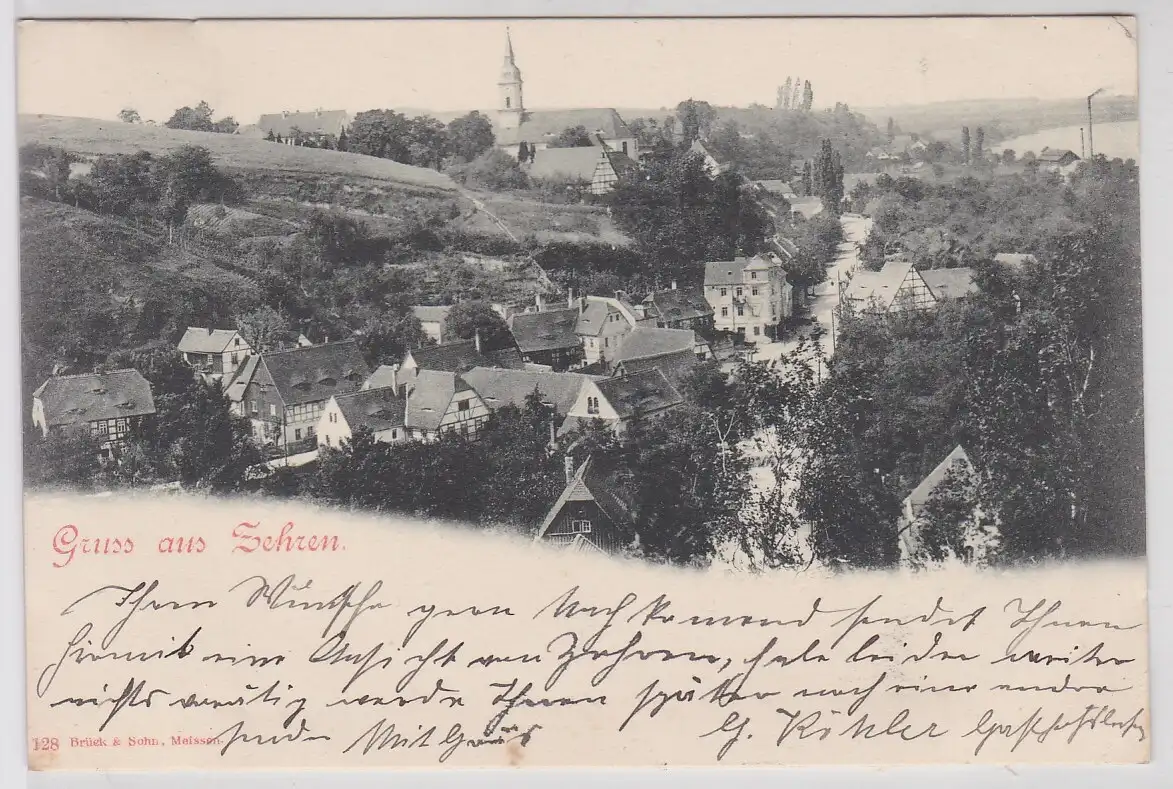 Gruss aus Zehren.
Ihrem Wunsche gern Nachkomend sendet Ihnen
hiermit eine Ansicht von Zehren, habe leider weiter
nichts vorrätig werde Ihnen später noch eine andre
senden Mit Gruss G. Köhler
128 Brück & Sohn, Meissen.